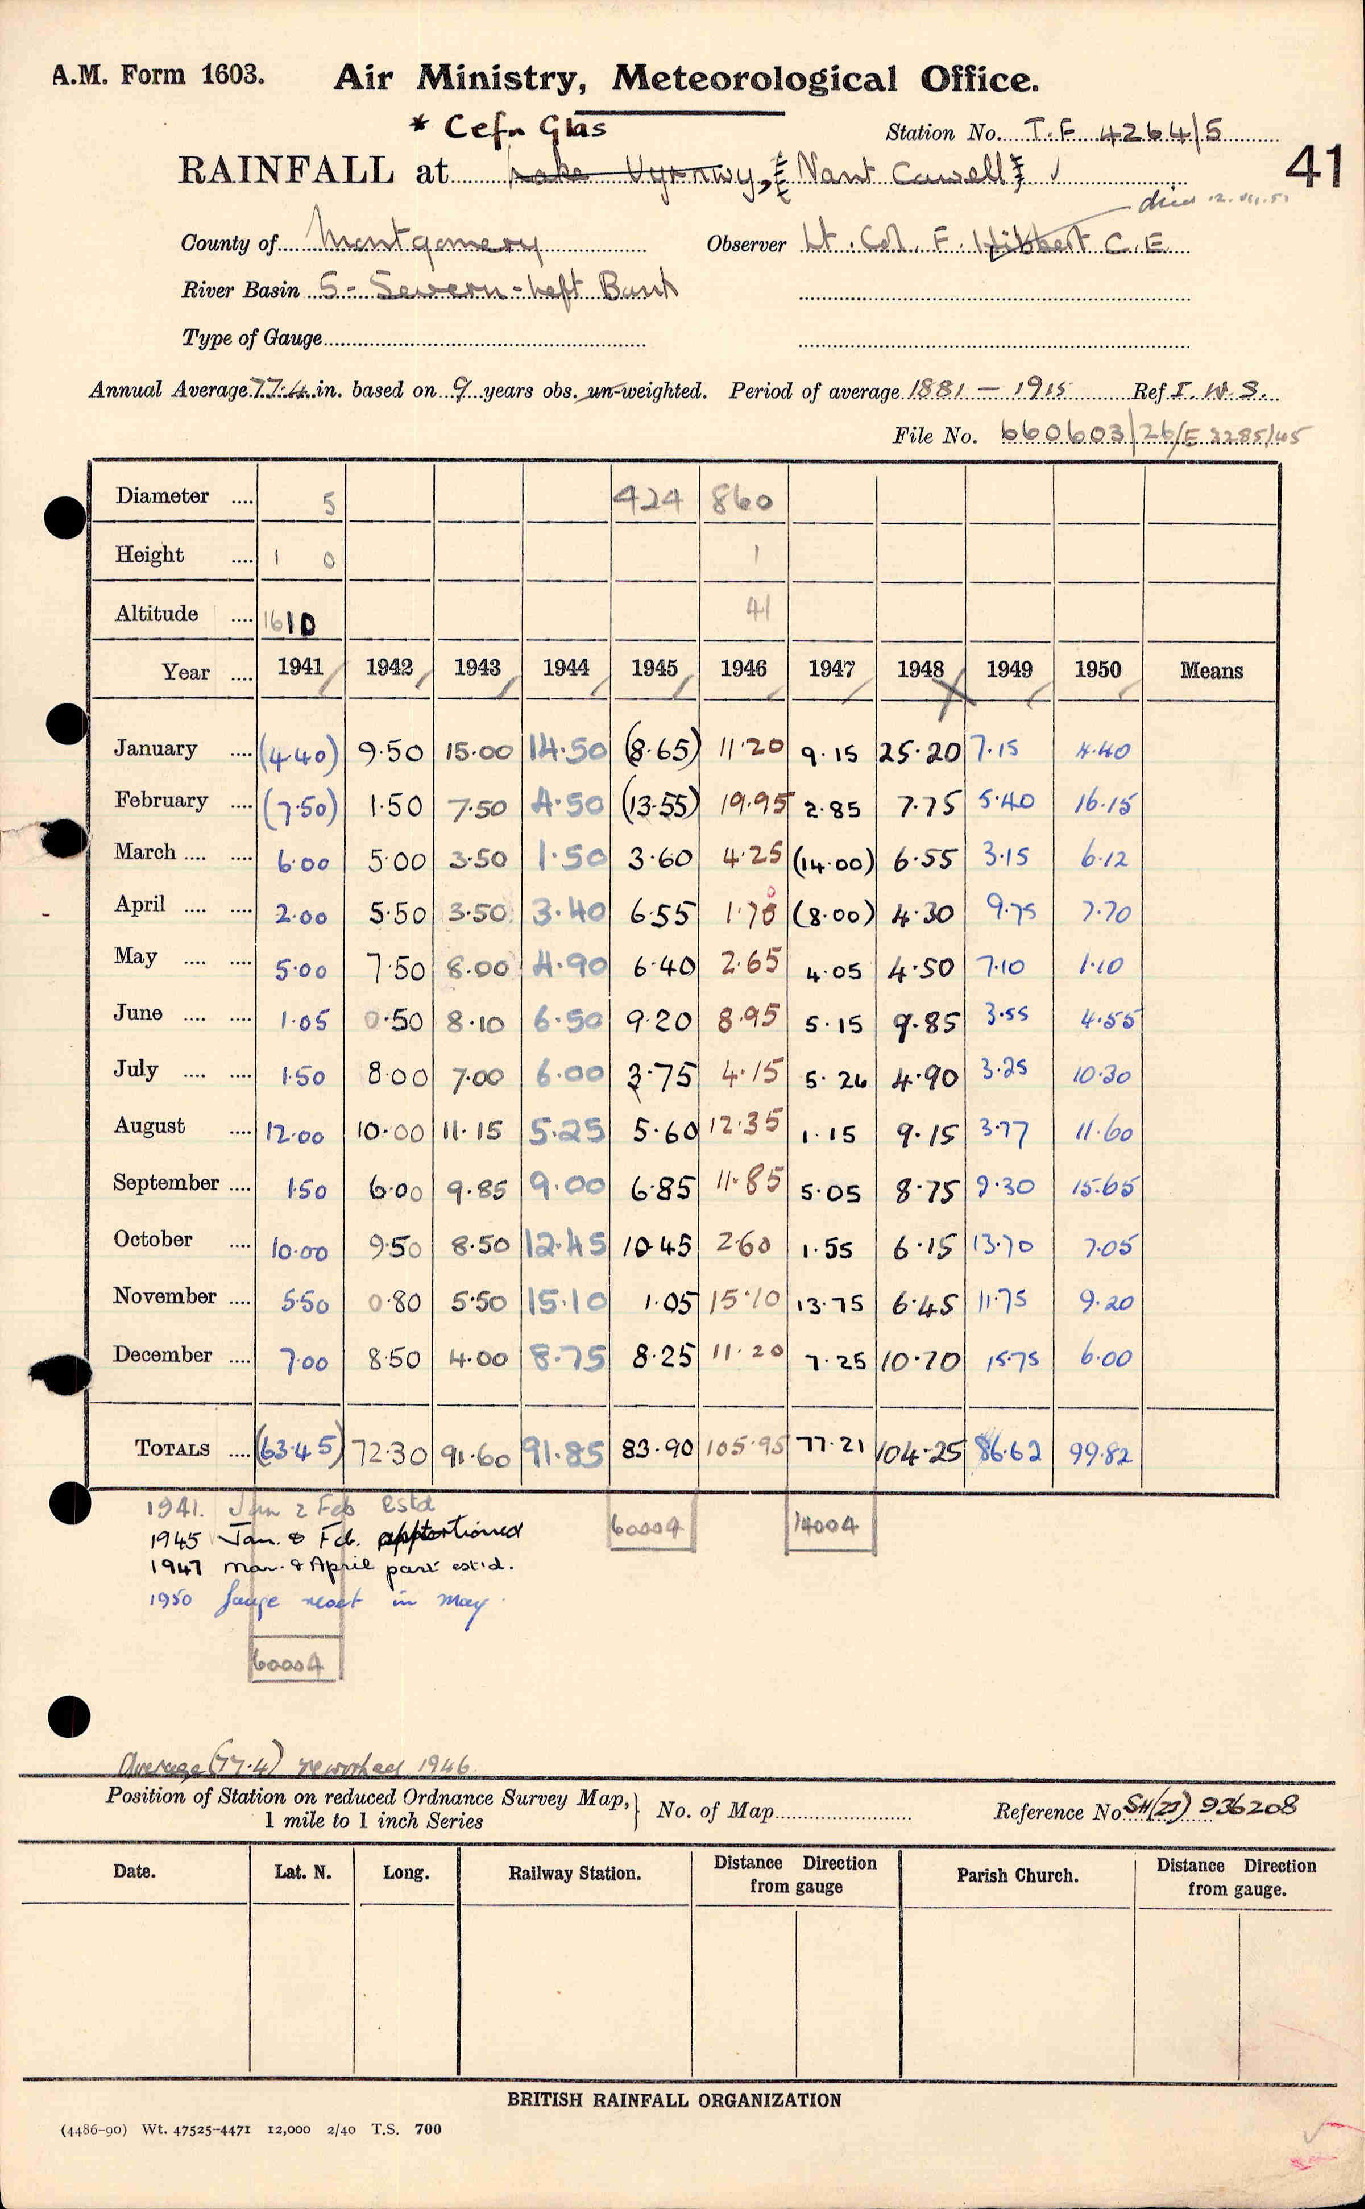 A.M. Form 1603. Air Ministry, Meteorological Office.
* Cefn Glas
Station No. T.F 4264/5
41
RAINFALL at Lake Vyrnwy, Nant Cawell
died
County of Montgomery Observer Lt. Col. F. Hibbert C.E
River Basin 5 - Severn - Left Bank
Type of Gauge
Annual Average 77.4 in. based on 9 years obs. un-weighted. Period of average 1881 - 1915 Ref I.W.S.
File No. 660603/26/E 3285/45
Diameter .... 5 424 860
Height .... 1 0 1
Altitude .... 1610 41
Year .... 1941 1942 1943 1944 1945 1946 1947 1948 1949 1950 Means
January .... (4.40) 9.50 15.00 14.50 (8.65) 11.20 9.15 25.20 7.15 4.40
February .... (7.50) 1.50 7.50 4.50 (13.55) 19.95 2.85 7.75 5.40 16.15
March .... .... 6.00 5.00 3.50 1.50 3.60 4.25 (14.00) 6.55 3.15 6.12
April .... .... 2.00 5.50 3.50 3.40 6.55 1.70 (8.00) 4.30 9.75 7.70
May .... .... 5.00 7.50 8.00 4.90 6.40 2.65 4.05 4.50 7.10 1.10
June .... .... 1.05 0.50 8.10 6.50 9.20 8.95 5.15 9.85 3.55 4.55
July .... .... 1.50 8.00 7.00 6.00 3.75 4.15 5.26 4.90 3.25 10.30
August .... 12.00 10.00 11.15 5.25 5.60 12.35 1.15 9.15 3.77 11.60
September .... 1.50 6.00 9.85 9.00 6.85 11.85 5.05 8.75 2.30 15.65
October .... 10.00 9.50 8.50 12.45 10.45 2.60 1.55 6.15 13.70 7.05
November .... 5.50 0.80 5.50 15.10 1.05 15.10 13.75 6.45 11.75 9.20
December .... 7.00 8.50 4.00 8.75 8.25 11.20 7.25 10.70 15.75 6.00
TOTALS .... (63.45) 72.30 91.60 91.85 83.90 105.95 77.21 104.25 86.62 99.82
1941. Jan & Feb Estd
60004 14004
1945 Jan. & Feb. apportioned
1947 Mar. & April part est'd.
1950 Gauge reset in May.
60004
Average (77.4) reworked 1946
Position of Station on reduced Ordnance Survey Map,
1 mile to 1 inch Series
No. of Map Reference No SH(23) 936208
Date. Lat. N. Long. Railway Station. Distance Direction from gauge Parish Church. Distance Direction from gauge.
BRITISH RAINFALL ORGANIZATION
(4486-90) Wt. 47525-4471 12,000 2/40 T.S. 700